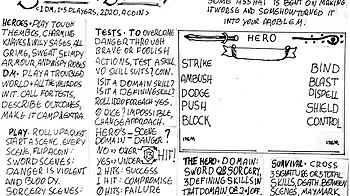 1 DM, 1-5 PLAYERS, 2D20, A COIN
HEROES: PLAY TOUGH
THEMBOS, CHARMING
KNAVES, WILY SAGES, ALL
GRIM, SWEAT SKIMPY
ARMOUR, AND BIG ROBES
DM: PLAY A TROUBLED
WORLD + ALL THE WEIRDOS
IN IT. CALL FOR TESTS,
DESCRIBE OUTCOMES,
MAKE IT CAMP, EXTRA.
PLAY: ROLL UP A QUEST
START A SCENE. EVERY
SCENE, FLIP A COIN:
SWORD SCENES:
DANGER IS VIOLENT
AND BLOODY.
SORCERY SCENES:
TESTS: TO OVERCOME
DANGER THROUGH
BRAVE OR FOOLISH
ACTIONS, TEST A SKILL
NO SKILL SUITS? COIN.
IS IT A DOMAIN SKILL?
IS IT A DEFINING SKILL?
ROLL 1D20 FOR EACH YES.
0 DICE? IMPOSSIBLE,
CHANGE APPROACH.
HERO'S - SCENE
DOMAIN - DANGER
NO = OVER
YES = UNDER
HIT!
2 HITS: SUCCESS
1 HIT: COMPROMISE
0 HITS: FAILURE
SOME ASSHAT IS BENT ON MAKING
IT WORSE AND SOMEHOW TURNED IT
INTO YOUR PROBLEM.
HERO
STRIKE
AMBUSH
DODGE
PUSH
BLOCK
BIND
BLAST
DISPELL
SHIELD
CONTROL
THE HERO: DOMAIN:
SWORD OR SORCERY,
3 DEFINING SKILLS IN
THAT DOMAIN OR 2+1 OFF.
SURVIVAL: CROSS
3 SIGNATURE OR 5 TOTAL
SKILLS, DEATH. BETWEEN
SCENES, MAY MARK